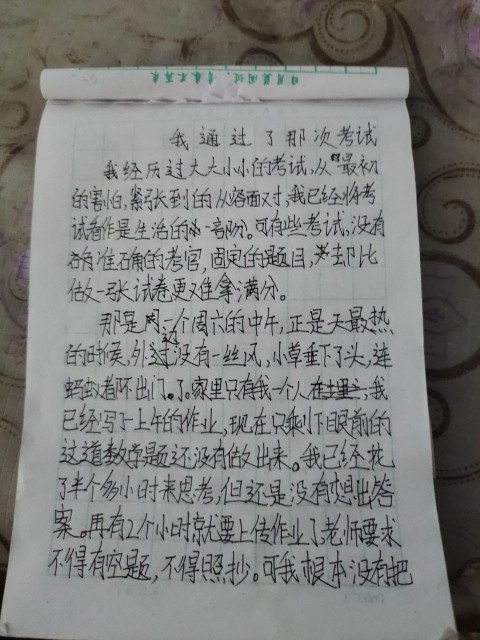 我通过了那次考试
我经历过大大小小的考试,从最初
的害怕,紧张到的从容面对,我已经将考
试看作是生活的一部分。可有些考试,没有
准确的考官,固定的题目,却比
做一张试卷更难拿满分。
那是一个周六的中午,正是天最热
的时候,外边没有一丝风,小草垂下了头,连
蚂蚁都不出门了。家里只有我一个人,我
已经写了一上午的作业,现在只剩下眼前的
这道数学题还没有做出来。我已经花
了半个多小时来思考,但还是没有想出答
案。再有2个小时就要上传作业了,老师要求
不得有空题,不得照抄。可我根本没有把